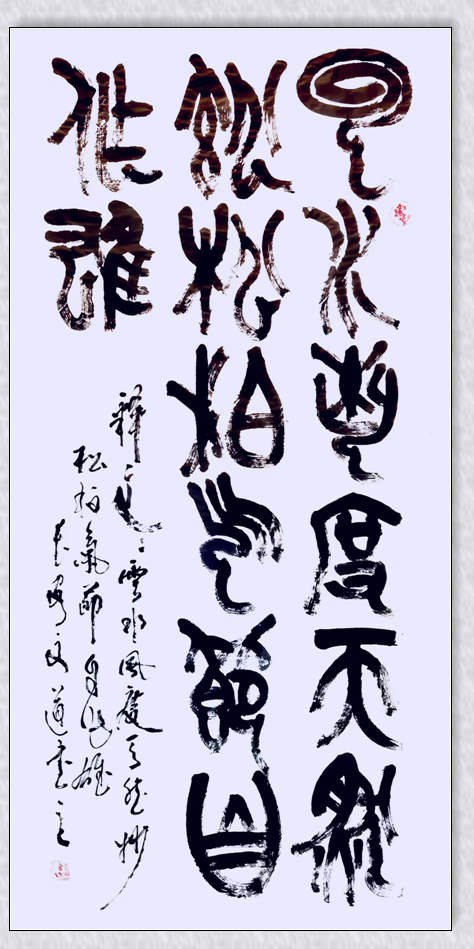 云水風度天然
妙松柏氣節自
作雄
釋文雲水風度天然妙
松柏氣節自作雄